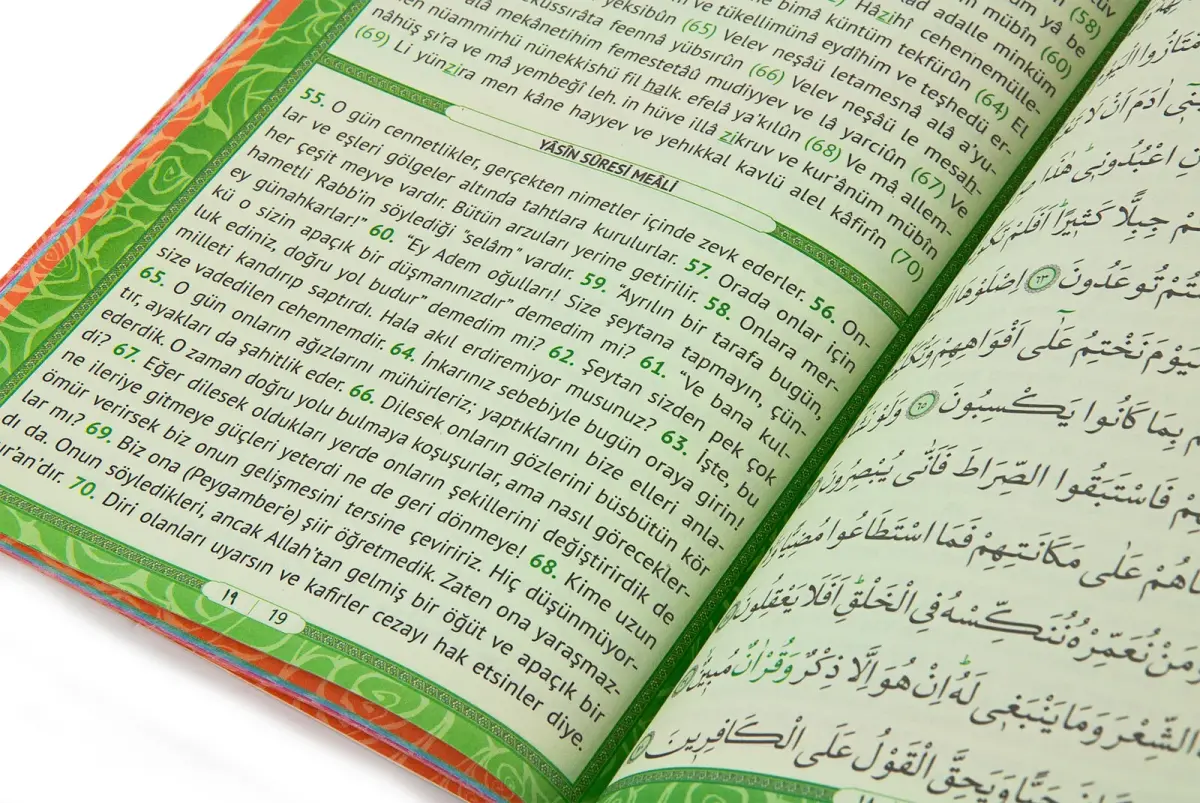 (58)
yâ be
mübîn (60)
kad adalle minküm
Hâzihî cehennemülle-
bimâ küntüm tekfürûn (64) El
ve tükellimünâ eydîhim ve teşhedü er-
yeksibûn (65) Velev neşâü letamesnâ alâ a'yü-
feennâ yübsırûn (66) Velev neşâü le mesah-
alâ mekânetihim femestetâû mudiyyev ve lâ yarciûn (67) Ve
nüammirhü nünekkishü fil halk. efelâ ya'kılûn (68) Ve mâ allem-
nâhüş şi'ra ve mâ yembeğî leh. in hüve illâ zikruv ve kur'ânüm mübîn
(69) Li yünzira men kâne hayyev ve yehıkkal kavlü alel kâfirîn (70)
YÂSÎN SÛRESİ MEÂLİ
55. O gün cennetlikler, gerçekten nimetler içinde zevk ederler. 56. On-
lar ve eşleri gölgeler altında tahtlara kurulurlar. 57. Orada onlar için
her çeşit meyve vardır. Bütün arzuları yerine getirilir. 58. Onlara mer-
hametli Rabb'in söylediği "selâm" vardır. 59. "Ayrılın bir tarafa bugün,
ey günahkarlar!" 60. "Ey Adem oğulları! Size şeytana tapmayın, çün-
kü o sizin apaçık bir düşmanınızdır" demedim mi? 61. "Ve bana kul-
luk ediniz, doğru yol budur" demedim mi? 62. Şeytan sizden pek çok
milleti kandırıp saptırdı. Hala akıl erdiremiyor musunuz? 63. İşte, bu
size vadedilen cehennemdir. 64. İnkarınız sebebiyle bugün oraya girin!
65. O gün onların ağızlarını mühürleriz; yaptıklarını bize elleri anla-
tır, ayakları da şahitlik eder. 66. Dilesek onların gözlerini büsbütün kör
ederdik. O zaman doğru yolu bulmaya koşuşurlar, ama nasıl görecekler-
di? 67. Eğer dilesek oldukları yerde onların şekillerini değiştirirdik de
ne ileriye gitmeye güçleri yeterdi ne de geri dönmeye! 68. Kime uzun
ömür verirsek biz onun gelişmesini tersine çeviririz. Hiç düşünmüyor-
lar mı? 69. Biz ona (Peygamber'e) şiir öğretmedik. Zaten ona yaraşmaz-
dı da. Onun söyledikleri, ancak Allah'tan gelmiş bir öğüt ve apaçık bir
ur'an'dır. 70. Diri olanları uyarsın ve kafirler cezayı hak etsinler diye.
١٩ 19
اٰدَمَ اَنْ لَا
اعْبُدُونِي هٰذَا
جِبِلًّا كَثِيرًا اَفَلَمْ
تُوعَدُونَ ٦٣ اِصْلَوْهَا
نَخْتِمُ عَلٰٓى اَفْوَاهِهِمْ
بِمَا كَانُوا يَكْسِبُونَ ٦٥ وَلَوْ
فَاسْتَبَقُوا الصِّرَاطَ فَاَنّٰى يُبْصِرُونَ
عَلٰى مَكَانَتِهِمْ فَمَا اسْتَطَاعُوا
وَمَنْ نُعَمِّرْهُ نُنَكِّسْهُ فِي الْخَلْقِ اَفَلَا يَعْقِلُونَ
الشِّعْرَ وَمَا يَنْبَغِي لَهُ اِنْ هُوَ اِلَّا ذِكْرٌ وَقُرْاٰنٌ مُبِينٌ
حَيًّا وَيَحِقَّ الْقَوْلُ عَلَى الْكَافِرِينَ